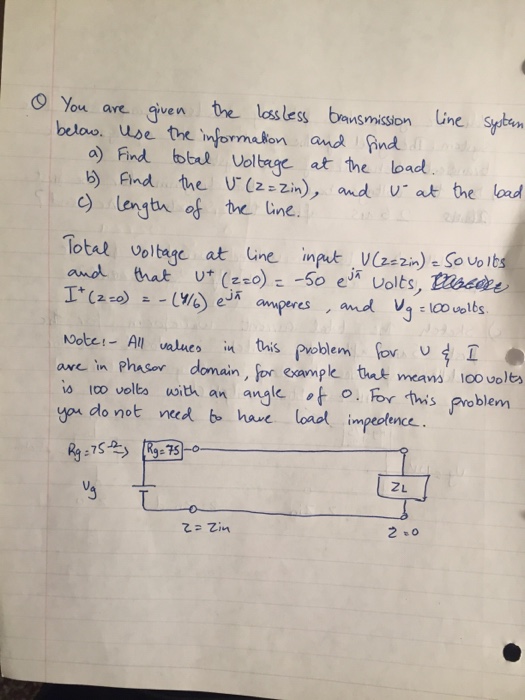 Q You are given the lossless transmission line system
below. Use the information and find
a) Find total voltage at the load.
b) Find the V⁻(z=zin), and V⁻ at the load
c) length of the line.
Total voltage at line input V(z=zin) = 50 volts
and that V⁺(z=0) = -50 e^jπ volts,
I⁺(z=0) = -(4/6) e^jπ amperes, and Vg = 100 volts.
Note:- All values in this problem for V & I
are in phasor domain, for example that means 100 volts
is 100 volts with an angle of 0. For this problem
you do not need to have load impedence.
Rg=75Ω → Rg=75
Vg
ZL
z=zin
z=0